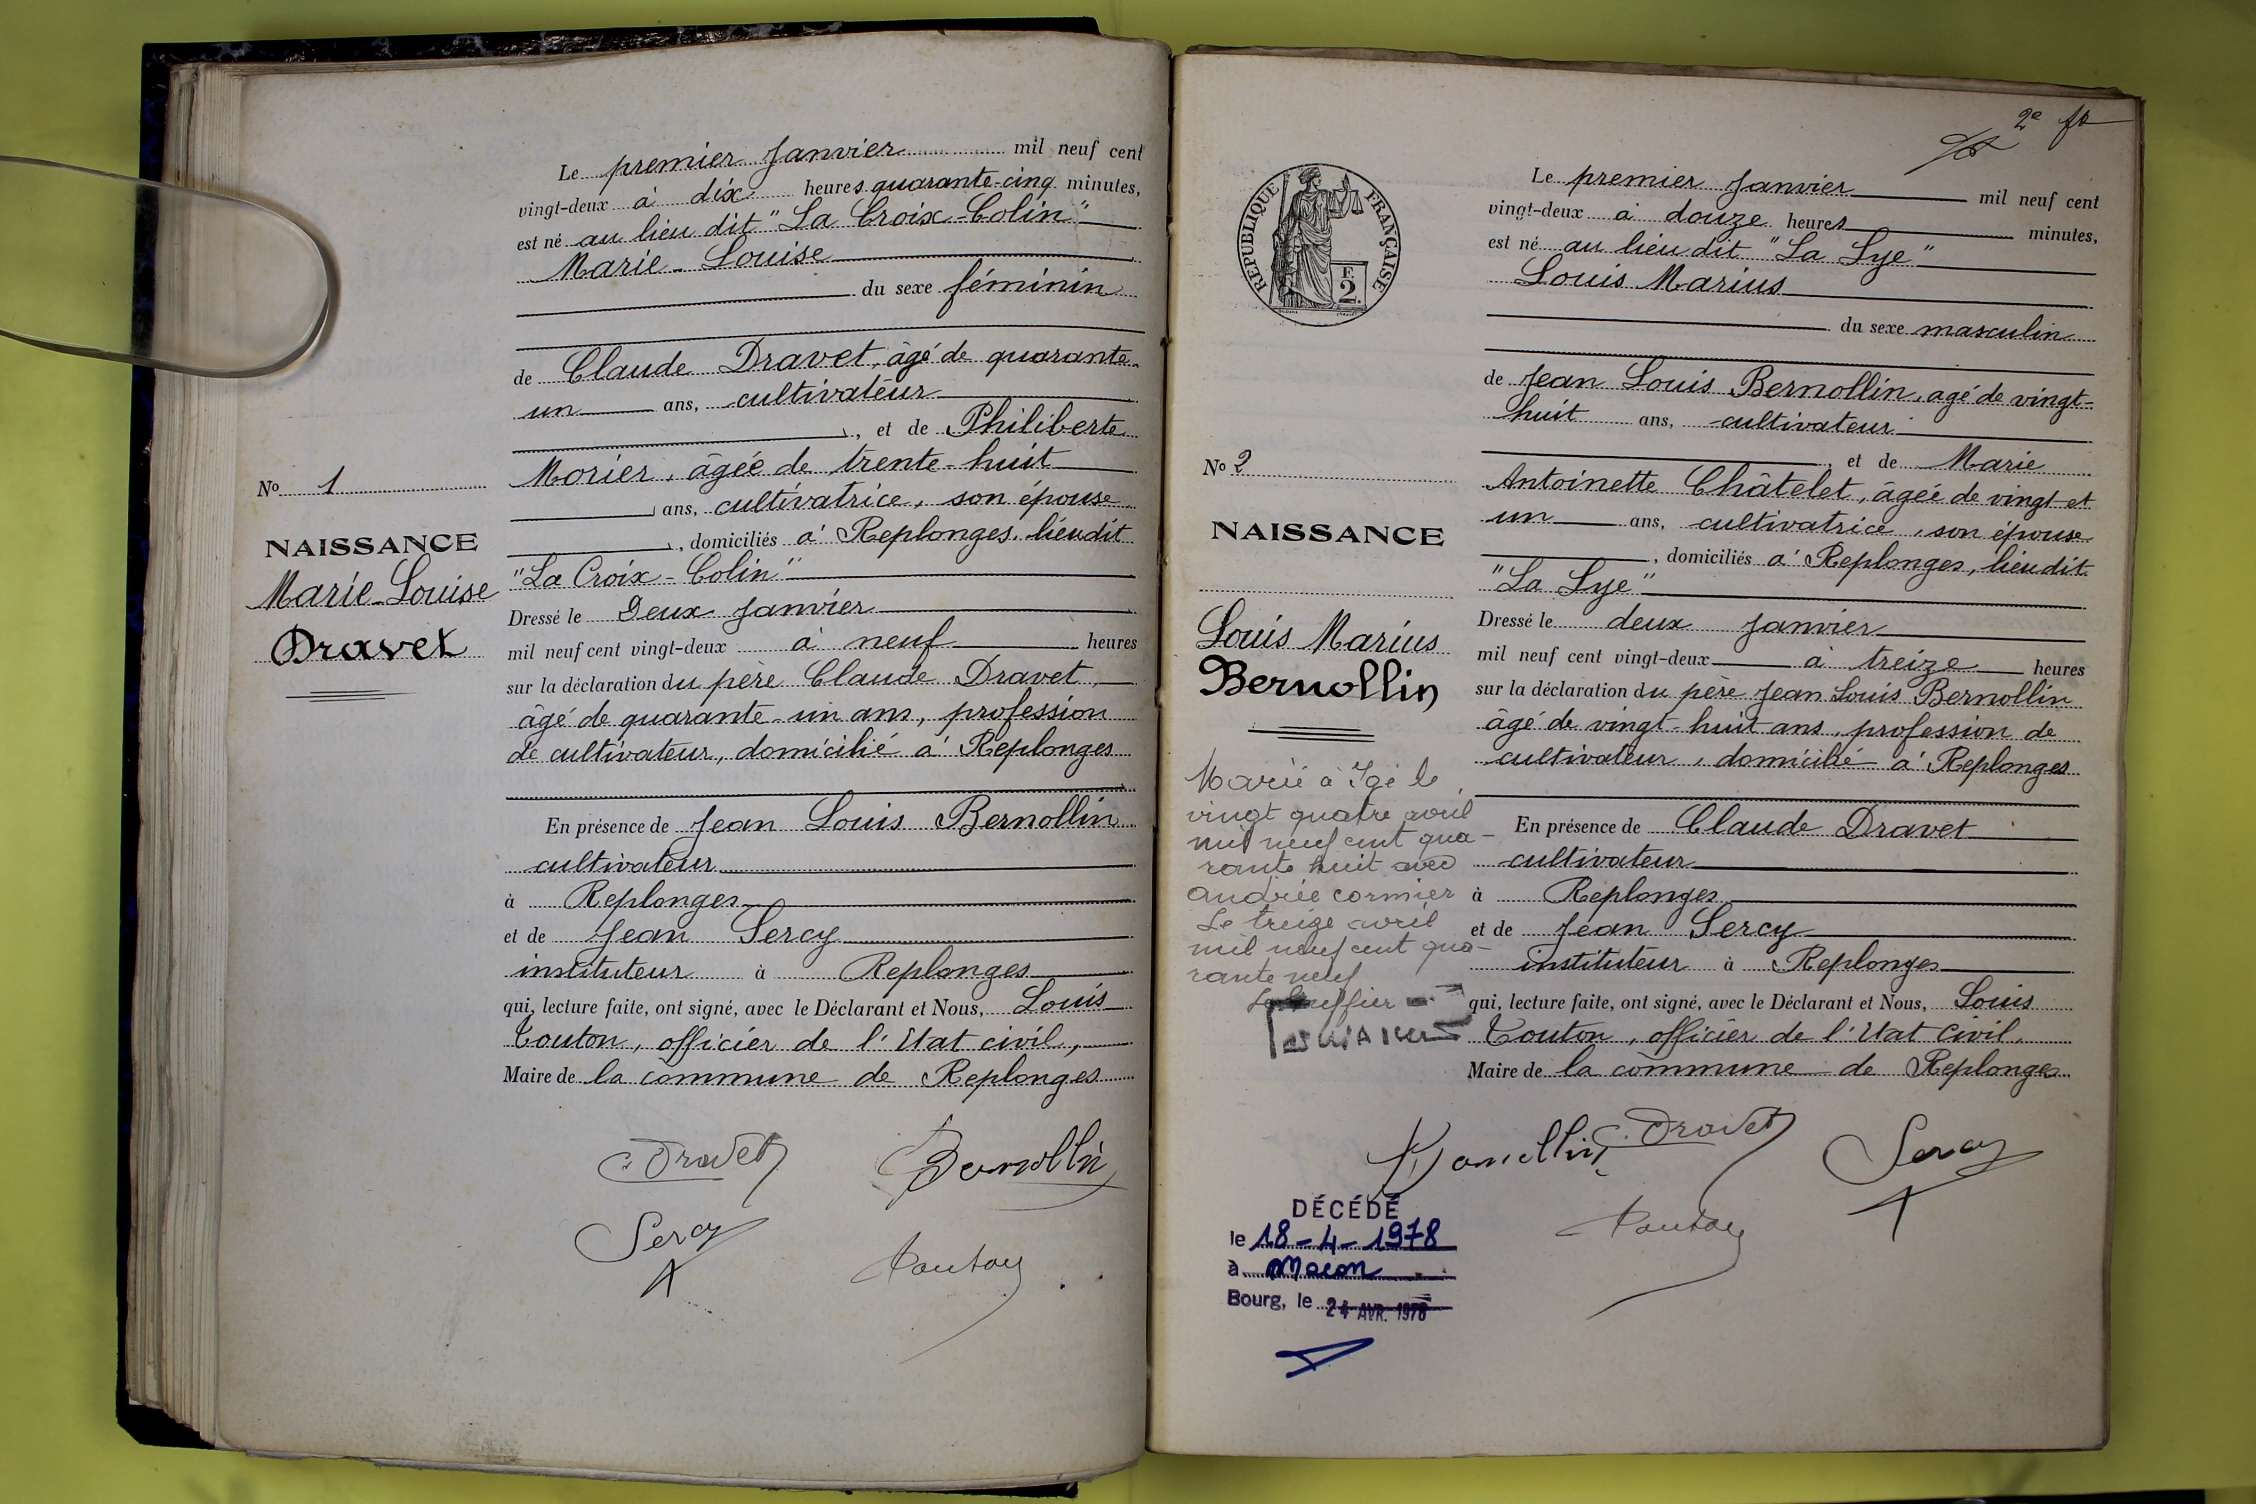 Le premier Janvier mil neuf cent
vingt-deux à dix heures quarante-cinq minutes,
est né au lieu dit "La Croix-Colin"
Marie-Louise
du sexe féminin
de Claude Dravet, âgé de quarante
un ans, cultivateur
, et de Philiberte
Morier, âgée de trente-huit
ans, cultivatrice, son épouse
, domiciliés à Replonges, lieu dit
"La Croix-Colin"
Dressé le Deux Janvier
mil neuf cent vingt-deux à neuf heures
sur la déclaration du père Claude Dravet,
âgé de quarante-un ans, profession
de cultivateur, domicilié à Replonges
En présence de Jean Louis Bernollin
cultivateur
à Replonges
et de Jean Sercy
instituteur à Replonges
qui, lecture faite, ont signé, avec le Déclarant et Nous, Louis
Touton, officier de l'Etat civil,
Maire de la commune de Replonges
No 1
NAISSANCE
Marie-Louise
Dravet
C. Dravet Bernollin
Sercy Touton
2e
Le premier Janvier mil neuf cent
vingt-deux à douze heures minutes,
est né au lieu dit "La Lye"
Louis Marius
du sexe masculin
de Jean Louis Bernollin, agé de vingt-
huit ans, cultivateur
, et de Marie
Antoinette Châtelet, âgée de vingt et
un ans, cultivatrice, son épouse
, domiciliés à Replonges, lieu dit
"La Lye"
Dressé le deux Janvier
mil neuf cent vingt-deux à treize heures
sur la déclaration du père Jean Louis Bernollin
âgé de vingt-huit ans, profession de
cultivateur, domicilié à Replonges
En présence de Claude Dravet
cultivateur
à Replonges
et de Jean Sercy
instituteur à Replonges
qui, lecture faite, ont signé, avec le Déclarant et Nous, Louis
Touton, officier de l'Etat civil,
Maire de la commune de Replonges
REPUBLIQUE FRANÇAISE
F. 2.
No 2
NAISSANCE
Louis Marius
Bernollin
Marié à Igé le
vingt quatre avril
mil neuf cent qua-
rante huit avec
Andrée Cormier
Le treize avril
mil neuf cent qua-
rante neuf
Bernollin C. Dravet Sercy
Touton
DÉCÉDÉ
le 18-4-1978
à Macon
Bourg, le 24 AVR. 1978